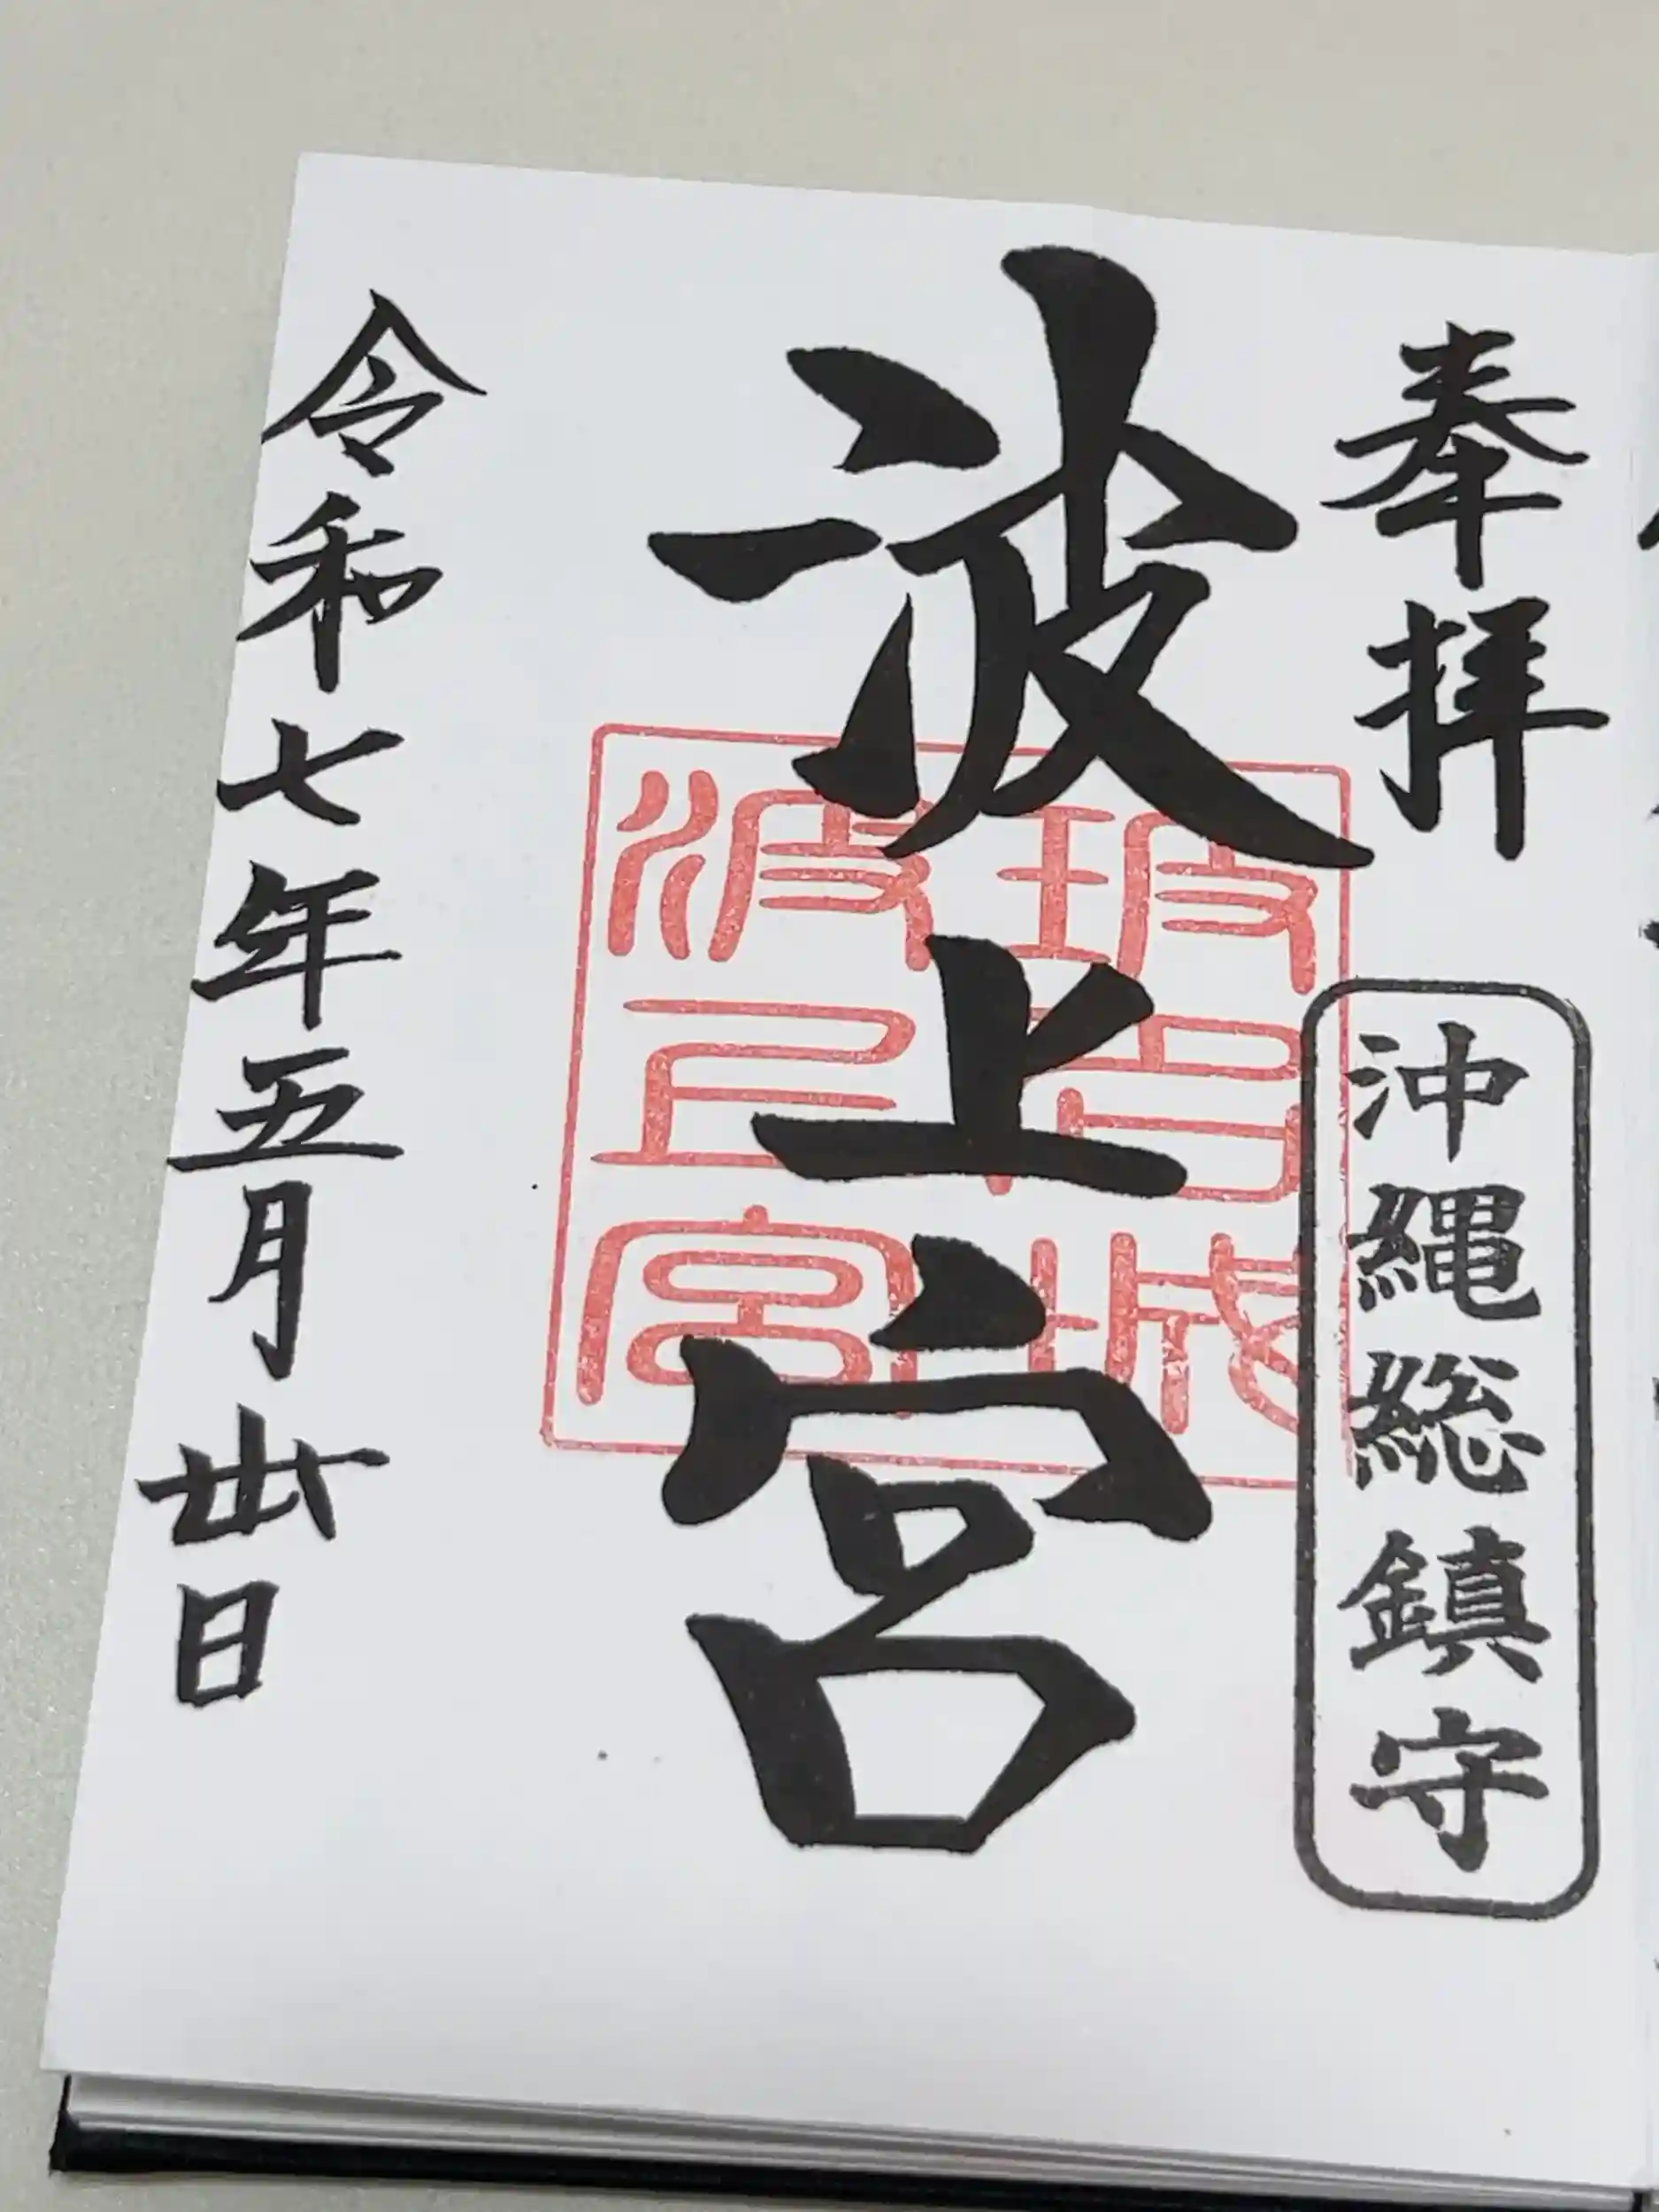 奉拝
沖縄総鎮守
波上宮
波上宮
令和七年五月丗日